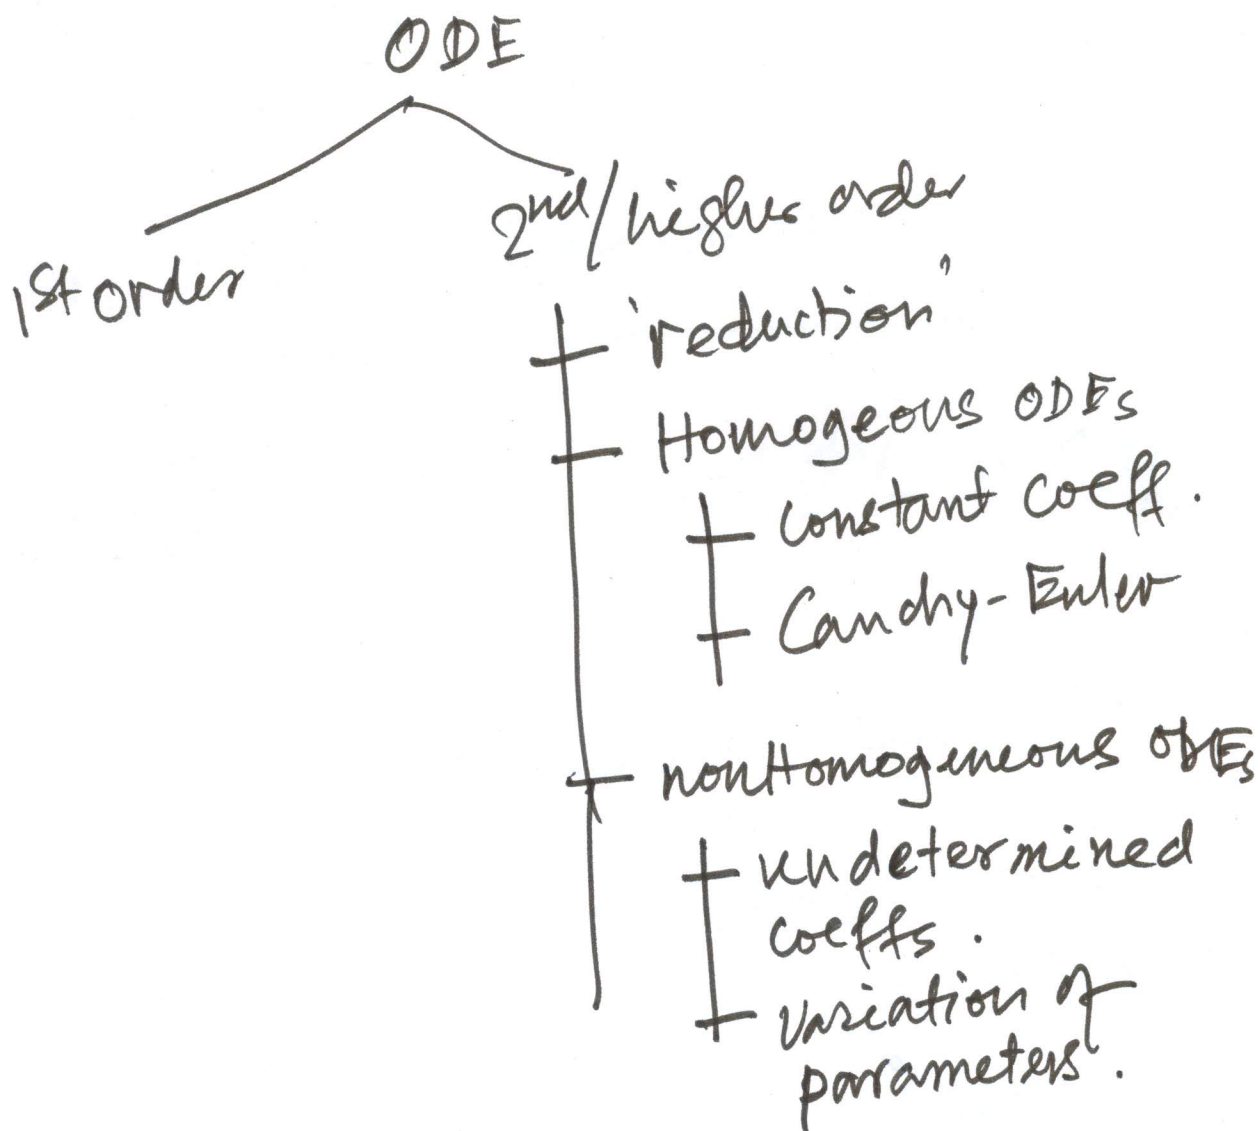 ODE
2nd/higher order
1st order
'reduction'
Homogeous ODEs
constant coeff.
Cauchy-Euler
nonHomogeneous ODEs
undetermined
coeffs.
variation of
parameters.